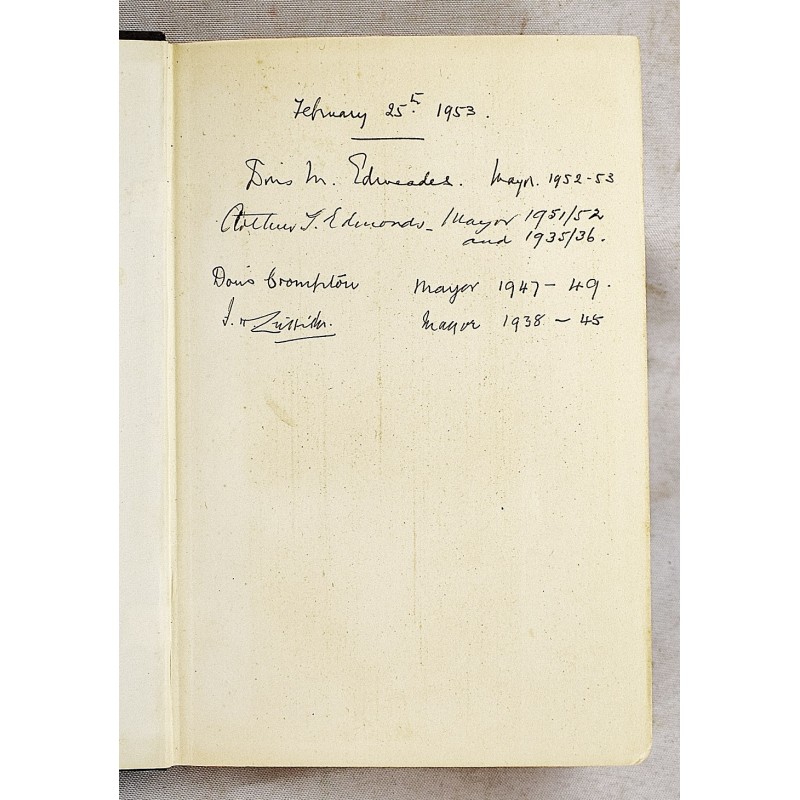 February 25th 1953.
Doris M. Edmeades. Mayor. 1952-53
Arthur T. Edmonds - Mayor 1951/52
and 1935/36.
Doris Crompton Mayor 1947-49.
Mayor 1938-45